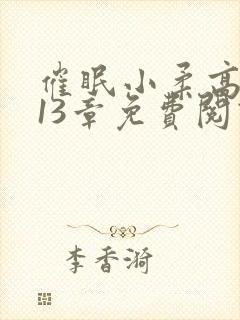 催眠小柔高
13章免費閱
李香漪